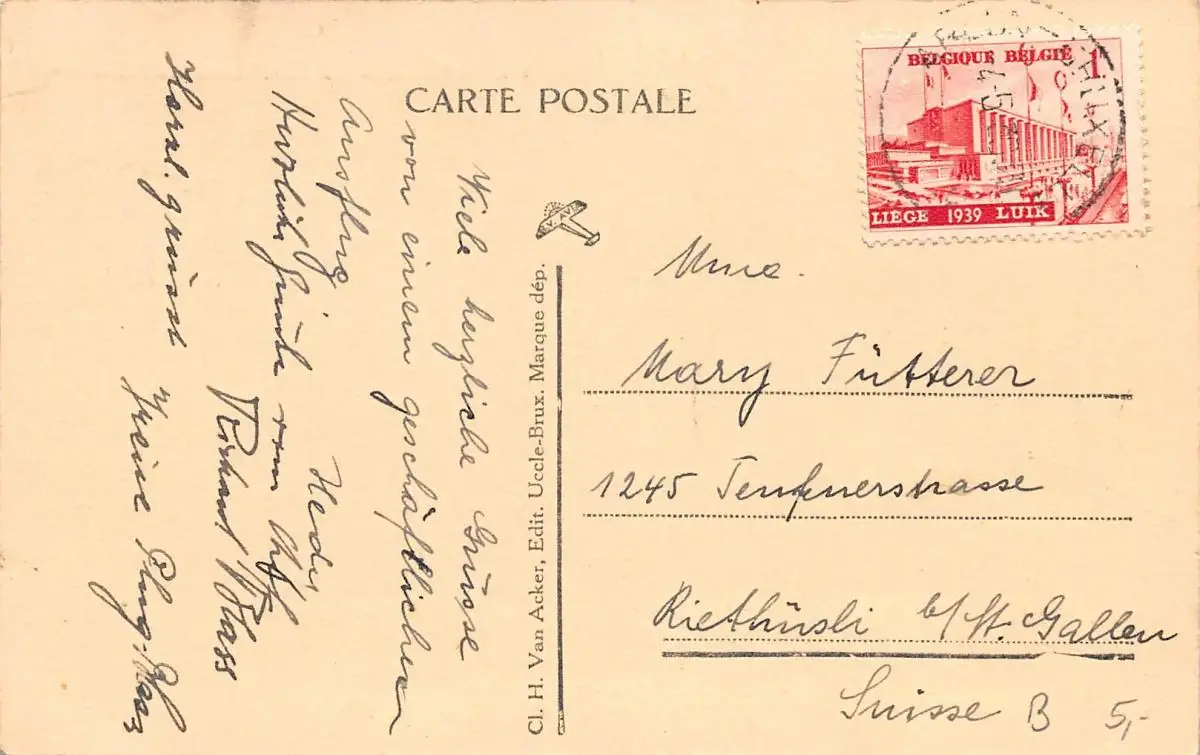 CARTE POSTALE
BELGIQUE BELGIË 1
LIEGE 1939 LUIK
Viele herzliche Grüsse
von einem geschäftlichen
Ausflug
Hedi
Herzliche Grüsse vom
Richard Blass
grüsst
Cl. H. Van Acker, Edit. Uccle-Brux. Marque dép.
V. AVI
Mme.
Mary Fütterer
1245 Teufenerstrasse
Riethüsli b/St. Gallen
Suisse B 5,-